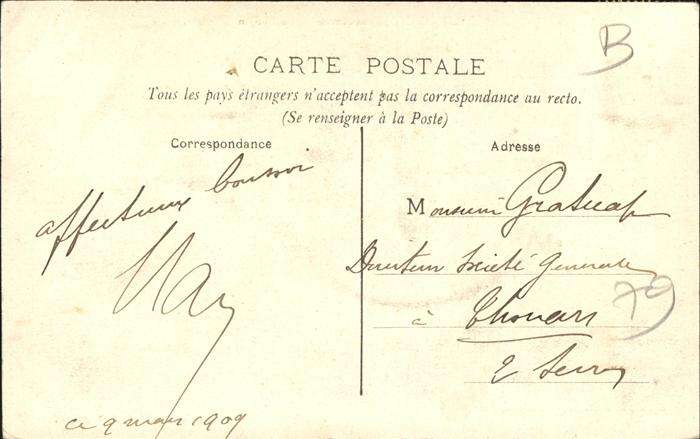 B
CARTE POSTALE
Tous les pays étrangers n'acceptent pas la correspondance au recto.
(Se renseigner à la Poste)
Correspondance
affectueux bonsoir
ce 9 mars 1909
Adresse
Monsieur Gratecap
Directeur Société Generale
à Thouars
2 Sevres
79